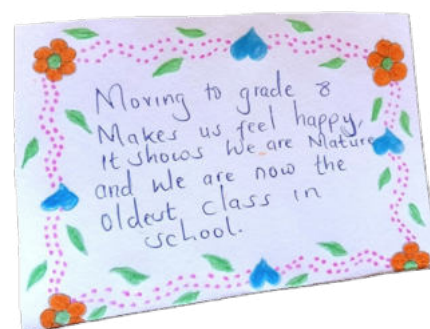 Moving to grade 8
Makes us feel happy,
it shows we are Mature
and we are now the
oldest class in
school.